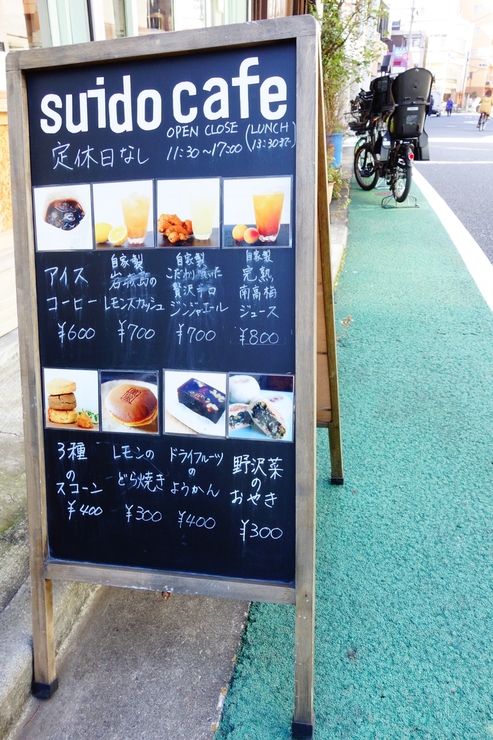 suido cafe
OPEN CLOSE (LUNCH)
定休日なし 11:30〜17:00 (13:30まで)
アイス
コーヒー
¥600
自家製
岩城島の
レモンスカッシュ
¥700
自家製
こだわり抜いた
贅沢辛口
ジンジャエール
¥700
自家製
完熟
南高梅
ジュース
¥800
3種
の
スコーン
¥400
レモンの
どら焼き
¥300
ドライフルーツ
の
ようかん
¥400
野沢菜
の
おやき
¥300